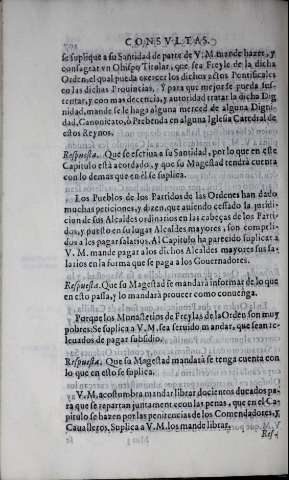 CONSVLTAS.
se suplique a su Santidad de parte de V. M. mande hazer, y
consagrar vn Obispo Titolar, que sea Freyle de la dicha
Orden, el qual pueda exercer los dichos actos Pontificales
en las dichas Prouincias. Y para que mejor se pueda sus-
tentar, y con mas decencia, y autoridad tratar la dicha Dig
nidad, mande se le haga alguna merced de alguna Digni-
dad, Canonicato, ò Prebenda en alguna Iglesia Catedral de
estos Reynos.
Respuesta. Que se escriua a su Santidad, por lo que en este
Capitulo està acordado, y que su Magestad tendrà cuenta
con lo demas que en èl se suplica.
Los Pueblos de los Partidos de las Ordenes han dado
muchas peticiones, y dizen, que auiendo cessado la jurisdi-
cion de sus Alcaldes ordinarios en las cabeças de los Parti-
dos, y puesto en su lugar Alcaldes mayores, son compeli-
dos a les pagar salarios. Al Capitulo ha parecido suplicar a
V. M. mande pagar a los dichos Alcaldes mayores sus sa-
larios en la forma que se paga a los Gouernadores.
Respuesta. Que su Magestad se mandarà informar de lo que
en esto passa, y lo mandarà proueer como conuenga.
Porque los Monasterios de Freylas de la Orden son muy
pobres: Se suplica a V. M. sea seruido mandar, que sean re-
leuados de pagar subsidio.
Respuesta. Que su Magestad mandarà se tenga cuenta con
lo que en esto se suplica.
V. M. acostumbra mandar librar docientos ducados pa
ra que se repartan juntamente con las penas, que en el Ca-
pitulo se hazen por las penitencias de los Comendadores, y
Caualleros, Suplica a V. M. los mande librar.
Res-